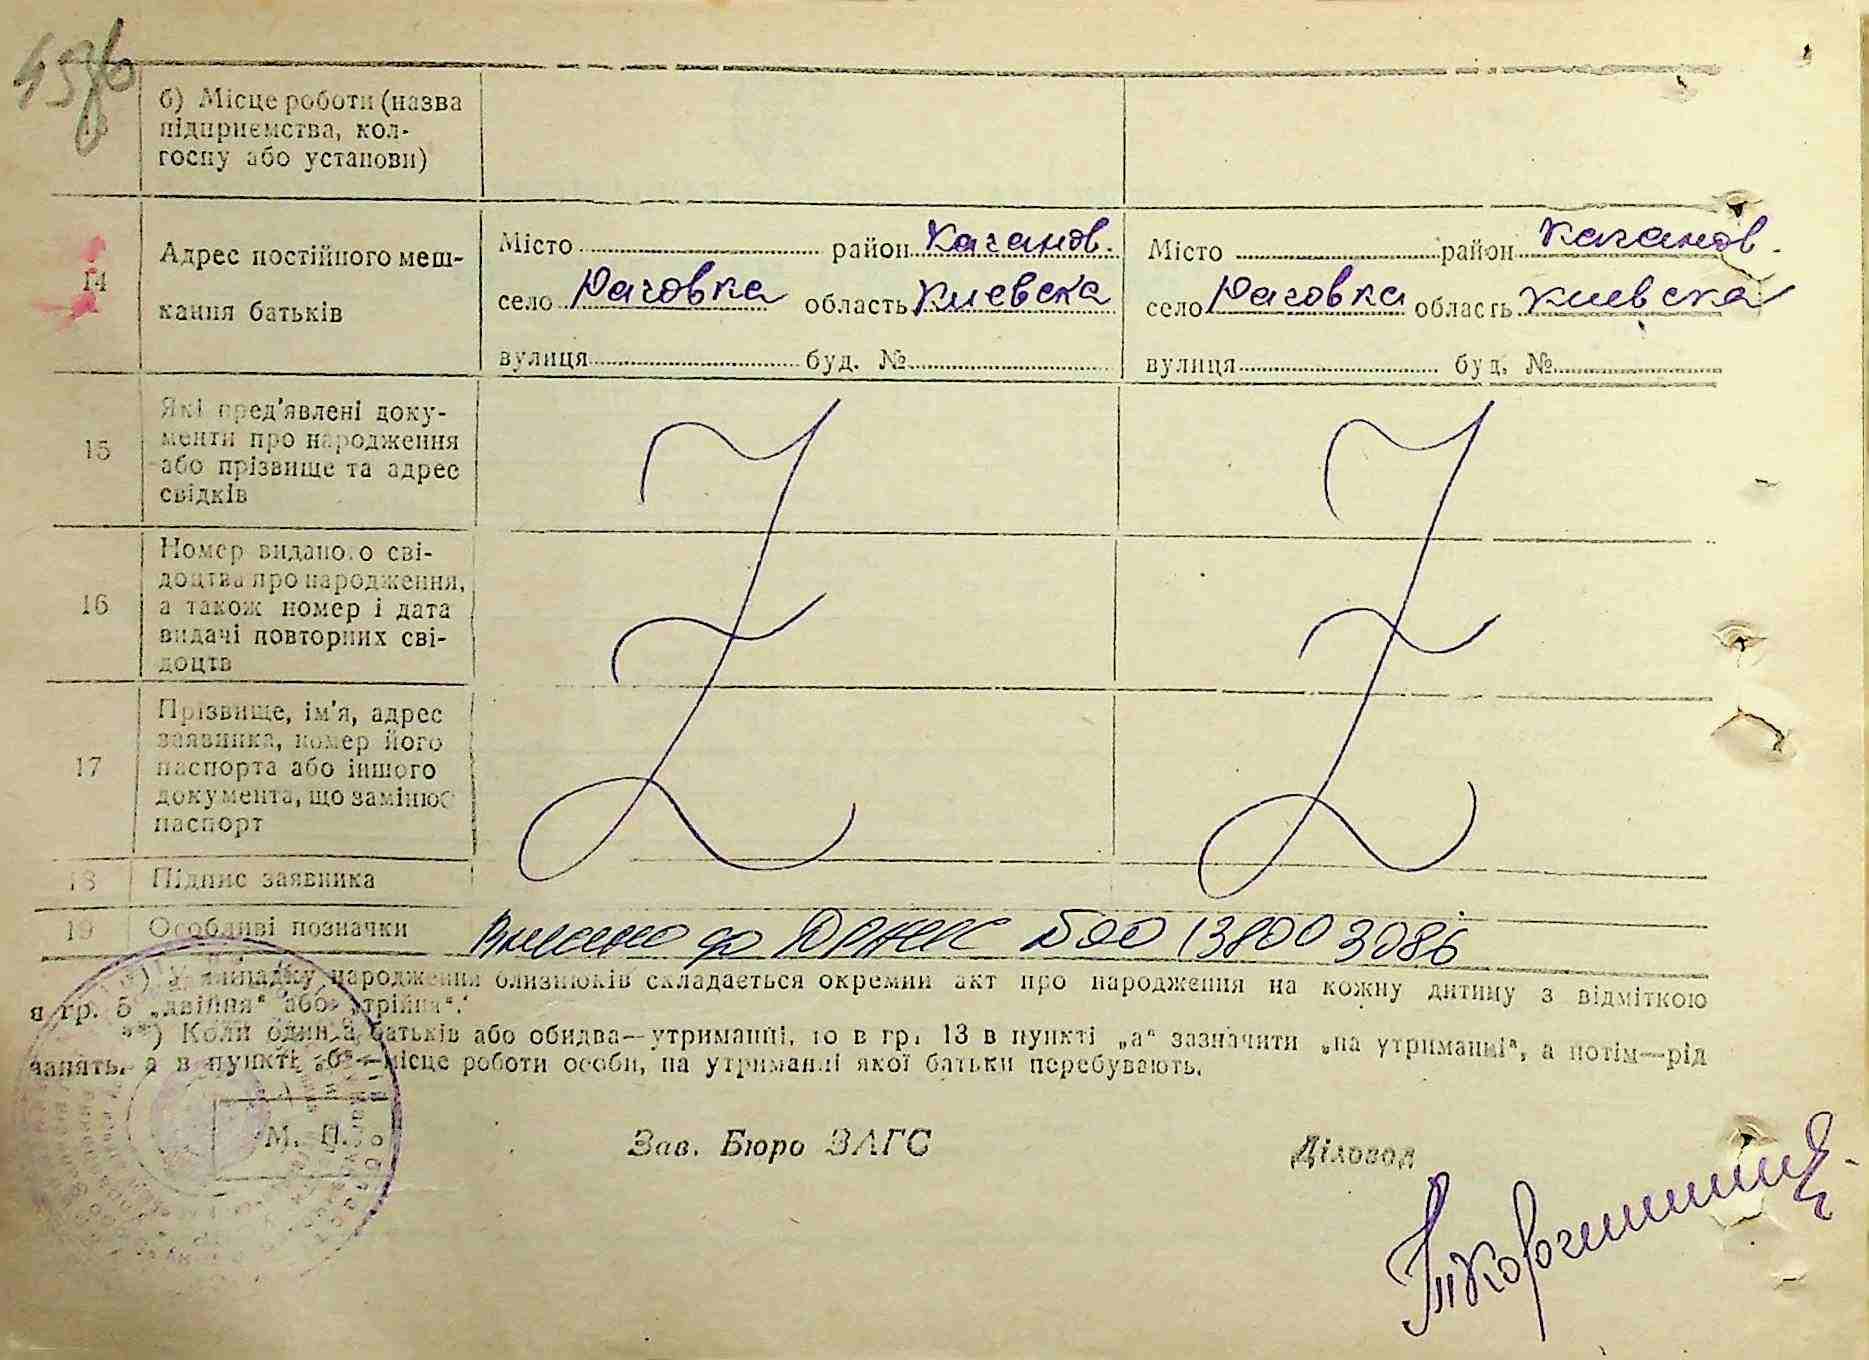 13
б) Місце роботи (назва
підприємства, кол-
госпу або установи)
14
Адрес постійного меш-
кання батьків
Місто район Каганов.
село Раговка область Киевска
вулиця буд. №
Місто район Каганов.
село Раговка область Киевска
вулиця буд. №
15
Які пред'явлені доку-
менти про народження
або прізвище та адрес
свідків
16
Номер виданого сві-
доцтва про народження,
а також номер і дата
видачі повторних сві-
доцтв
17
Прізвище, ім'я, адрес
заявника, номер його
паспорта або іншого
документа, що замінює
паспорт
18 Підпис заявника
19 Особливі позначки Внесено до 13800 3086
*) У випадку народження близнюків складається окремий акт про народження на кожну дитину з відміткою
в гр. 5 „двійня“ або „трійня“.
**) Коли один з батьків або обидва—утриманці, то в гр. 13 в пункті „а“ зазначити „на утриманні“, а потім—рід
занять, а в пункті „б“—місце роботи особи, на утриманні якої батьки перебувають.
М. П.
Зав. Бюро ЗАГС
Діловод